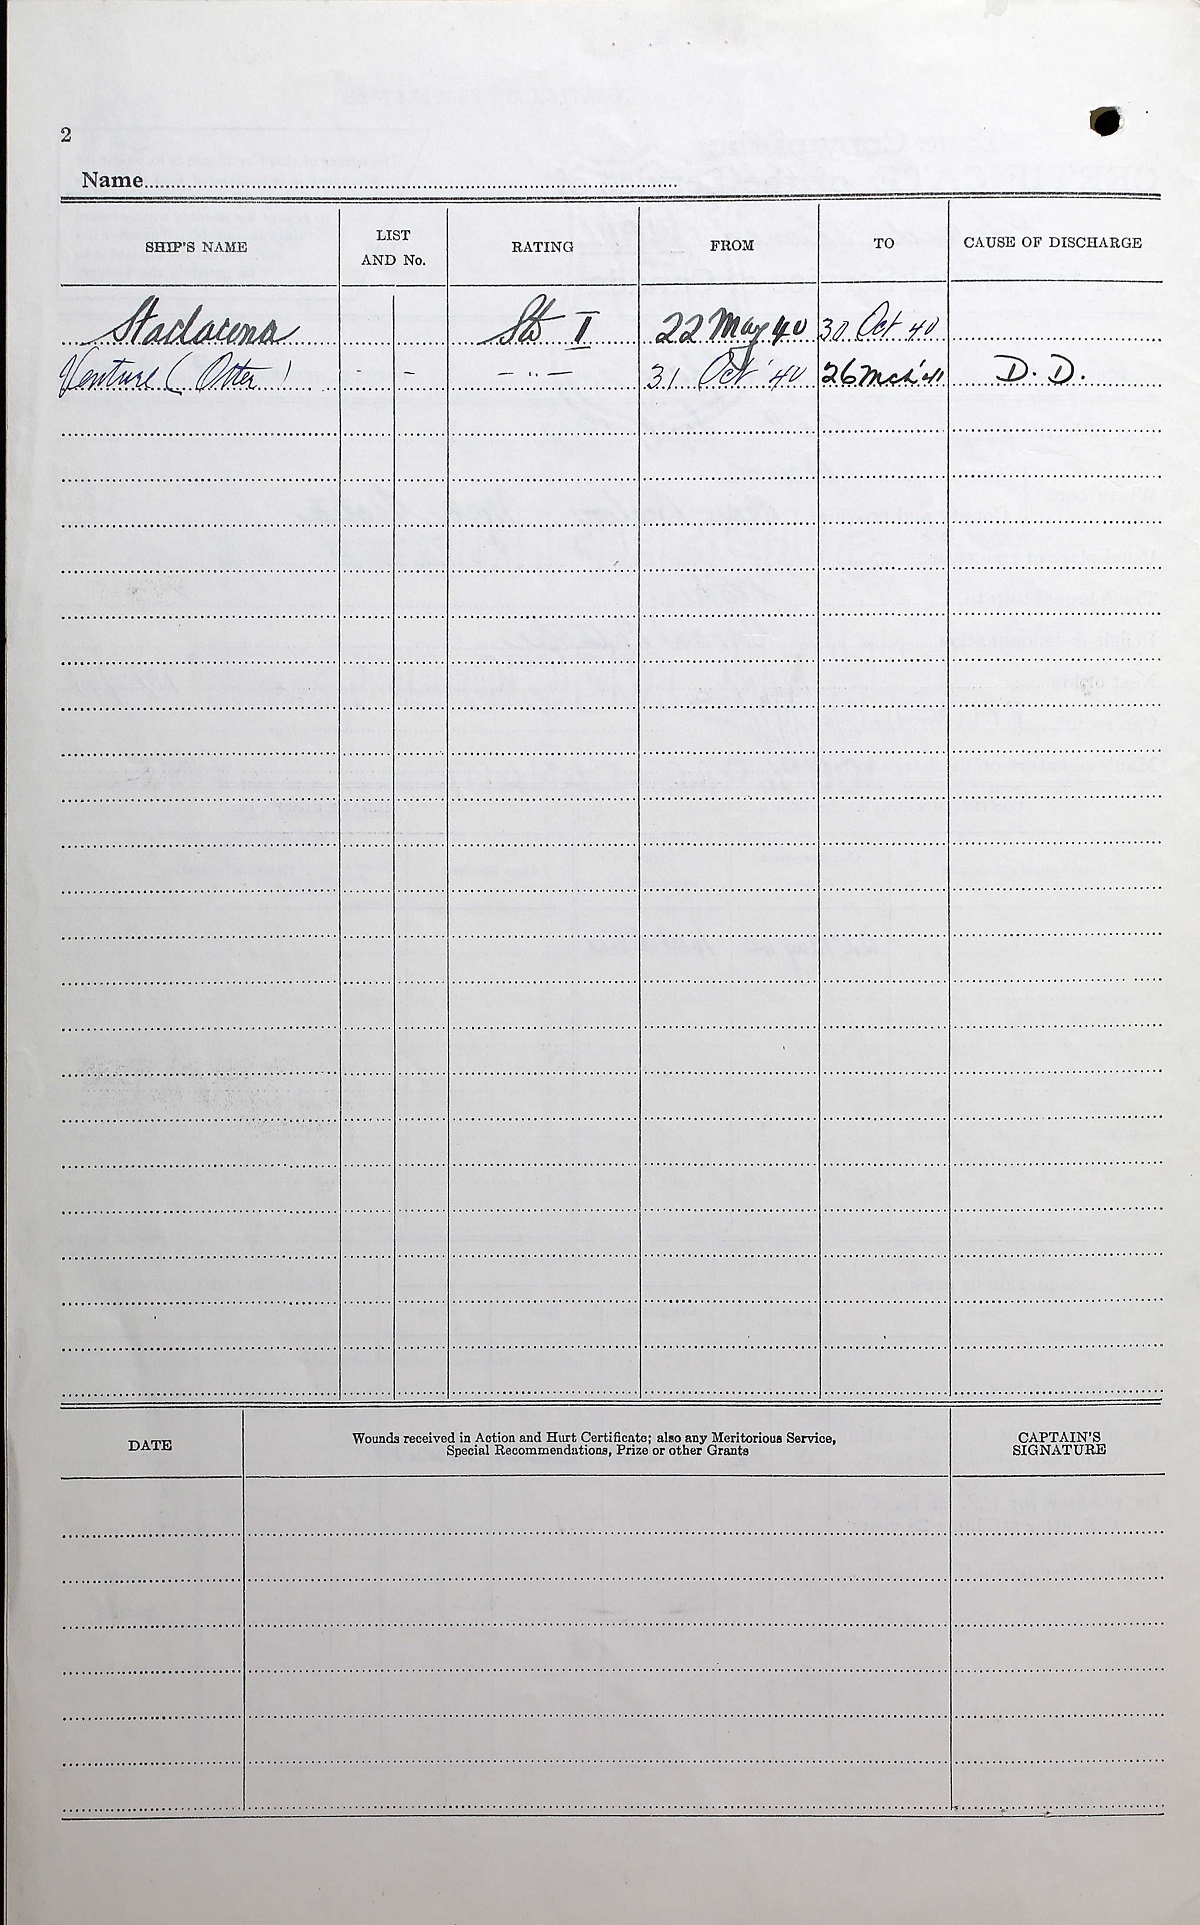 2
Name
SHIP'S NAME LIST AND No. RATING FROM TO CAUSE OF DISCHARGE
Stadacona Sto II 22 May 40 30 Oct 40
Venture ( Otter ) - - - " - 31 Oct '40 26 Mch '41 D. D.
DATE Wounds received in Action and Hurt Certificate; also any Meritorious Service, CAPTAIN'S
Special Recommendations, Prize or other Grants SIGNATURE